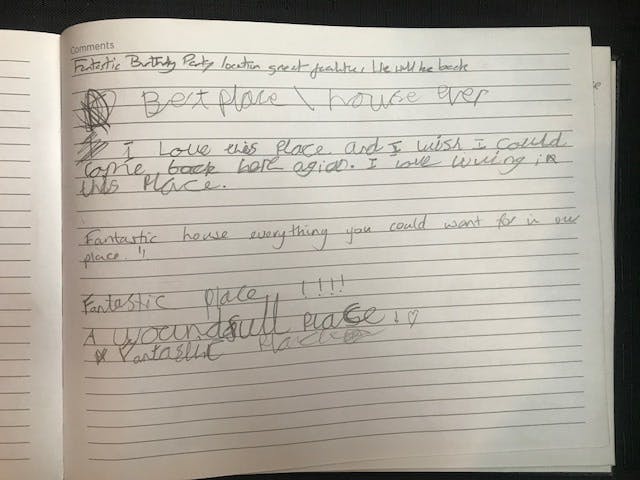 Comments
Fantastic Birthday Party location great facilities, We will be back
Best place \ house ever
I Love this Place and I wish I could
come back here agian. I love living in
this Place.
Fantastic house everything you could want for in our
place !!
Fantastic place !!!!
A woundfull place ! ♡
Fantastic Place